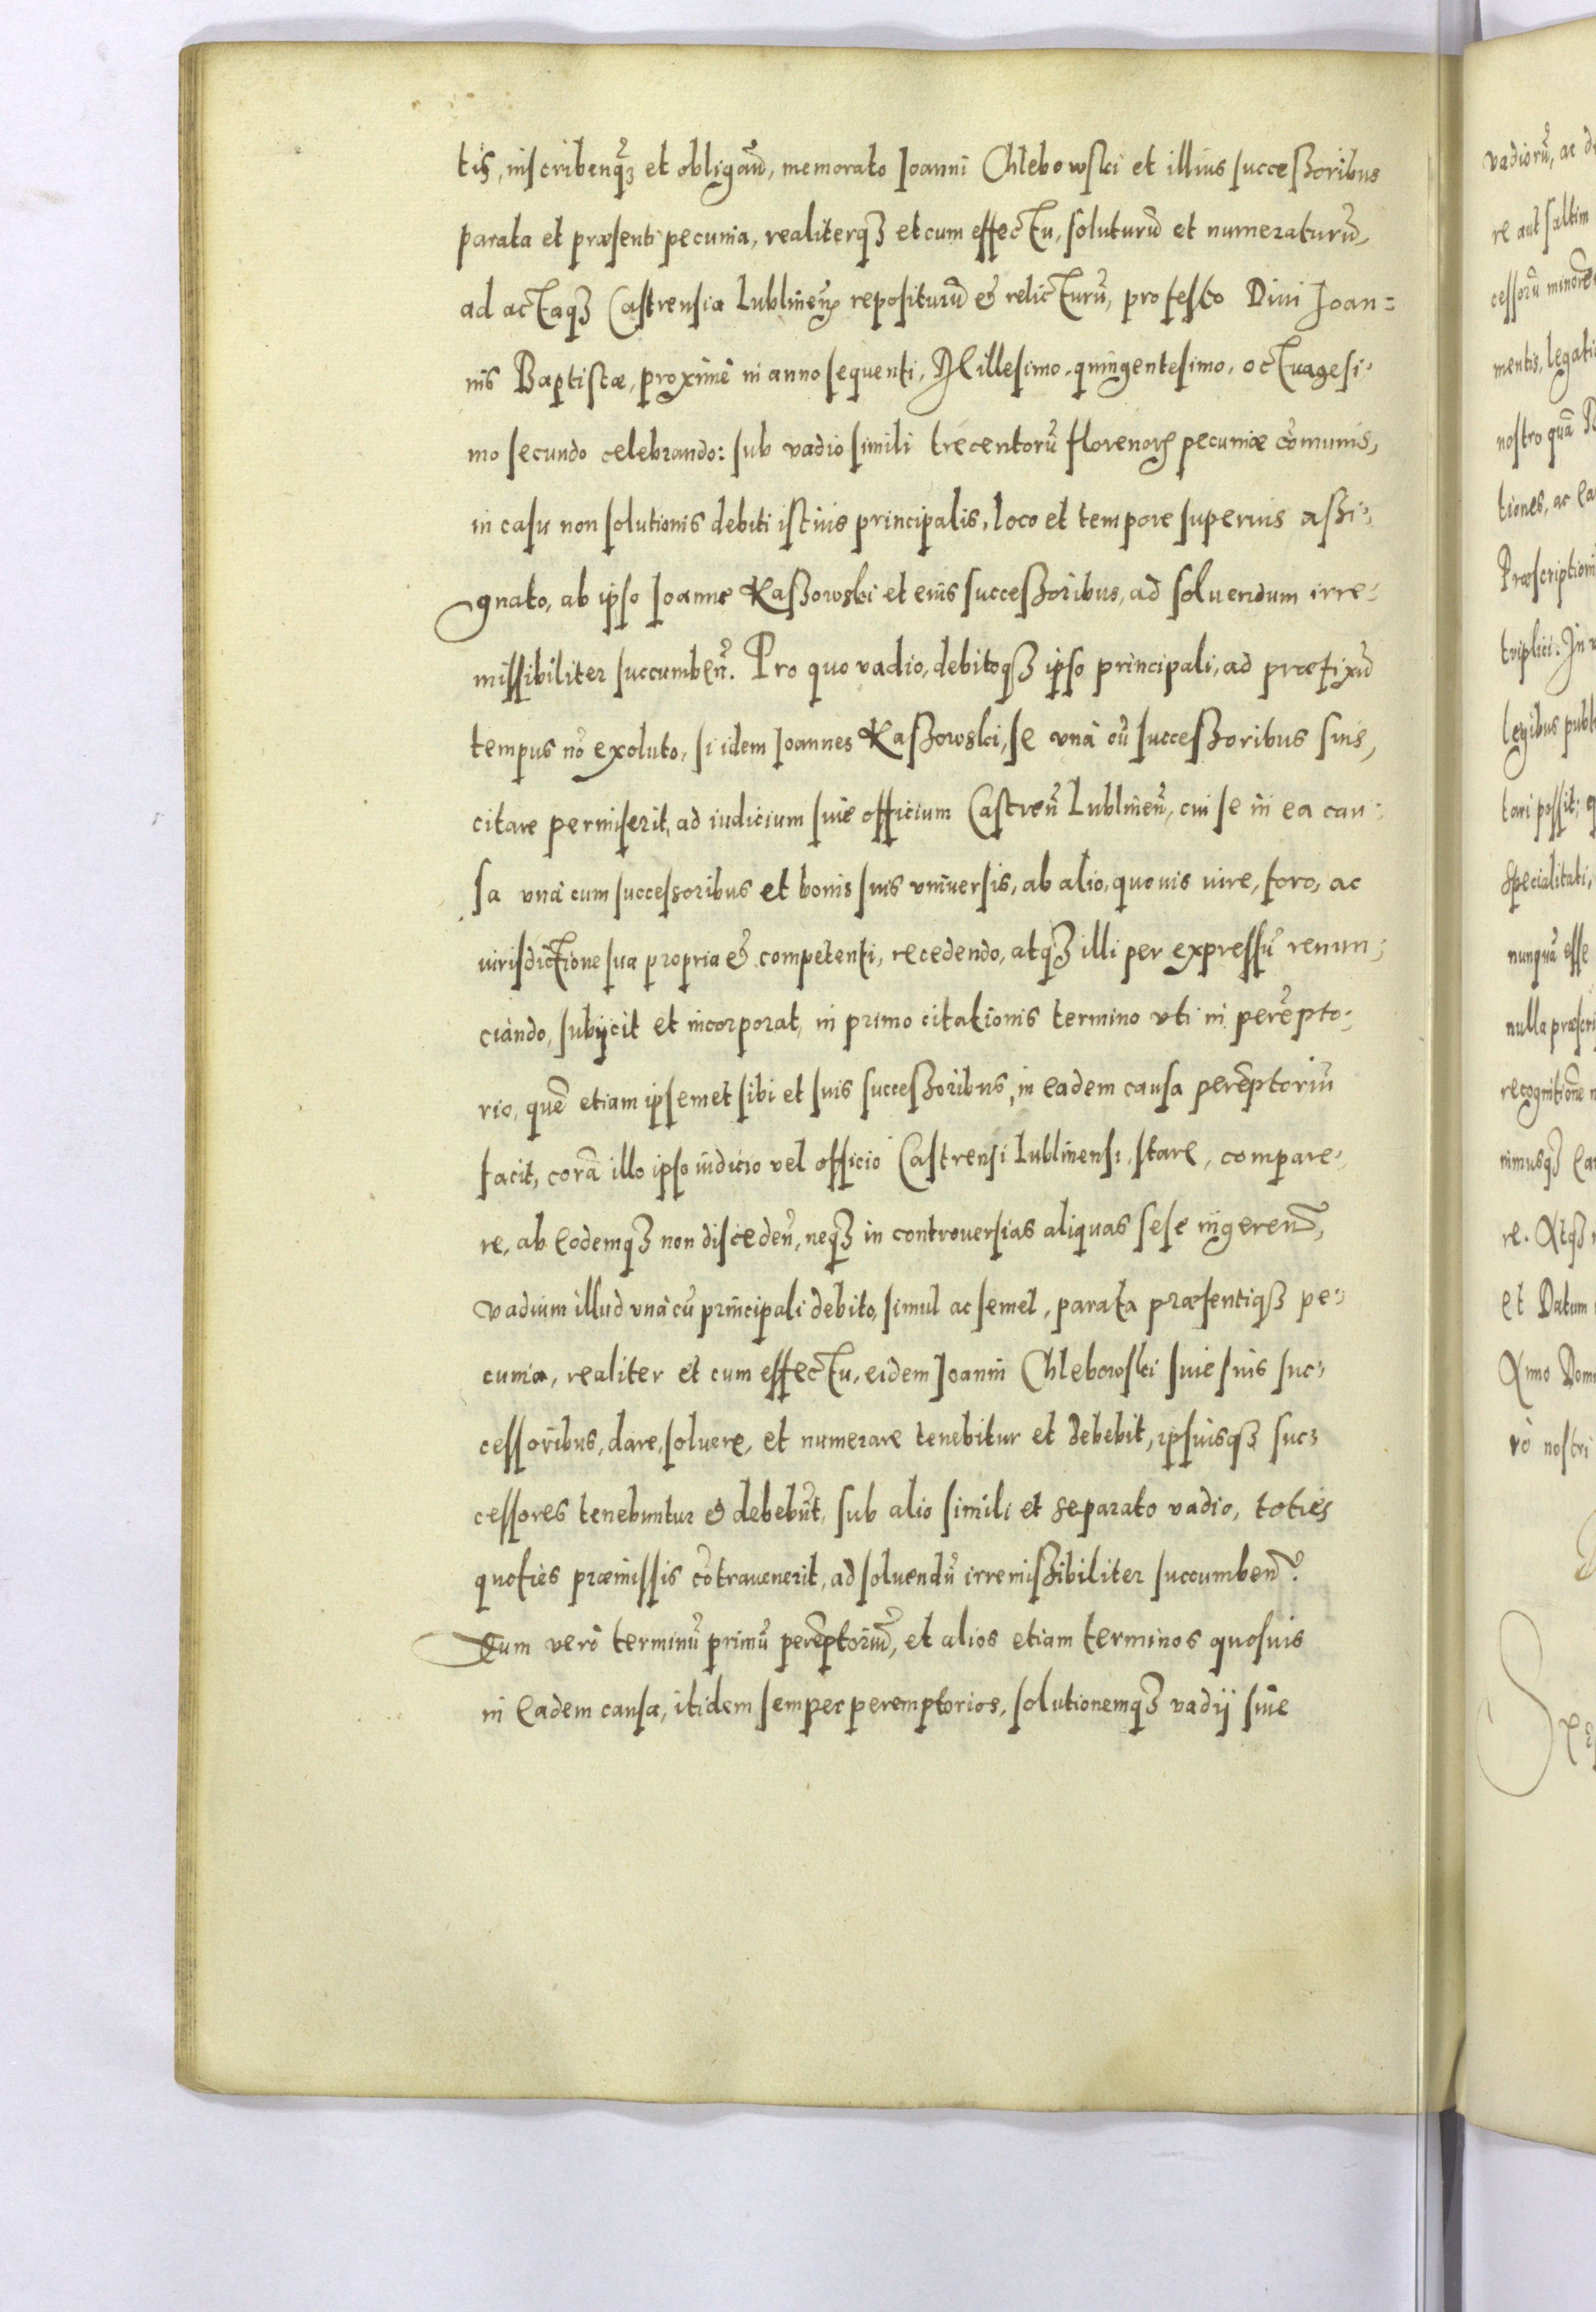 tis, inscribenq̃ꝫ et obligañ, memorato Ioanni Chlebowski et illius successoribus
parata et præsenti pecunia, realiterqꝫ et cum effectu, soluturũ et numeraturũ,
ad actaqꝫ Castrensia Lublineñ repositurũ & relicturũ, pro festo Diui Joan=
nis Baptistæ, proximè in anno sequenti, Millesimo. quingentesimo. octuagesi-
mo secundo celebrando: sub vadio simili trecentorũ florenorꝫ pecuniæ cõmunis,
in casu non solutionis debiti istius principalis, loco et tempore superius assi-
gnato, ab ipso Ioanne Kaszowski et eius successoribus, ad soluendum irre-
missibiliter succumbeñ. Pro quo vadio, debitoqꝫ ipso principali, ad præfixũ
tempus nõ exoluto, si idem Ioannes Kaszowski, se vnà cũ successoribus suis,
citare permiserit, ad iudicium siue officium Castreñ Lublineñ, cui se in ea cau-
sa vnà cum successoribus et bonis suis vniuersis, ab alio, quouis iure, foro, ac
iurisdictione sua propria & competenti, recedendo, atqꝫ illi per expressũ renun-
ciando, subijcit et incorporat, in primo citationis termino vti in perẽpto-
rio, quẽ etiam ipsemet sibi et suis successoribus, in eadem causa perẽptoriũ
facit, corã illo ipso iudicio vel officio Castrensi Lublinensi, stare, compare-
re, ab eodemqꝫ non discedeñ, neqꝫ in controuersias aliquas sese ingereñ,
vadium illud vnà cũ principali debito, simul ac semel, parata præsentiqꝫ pe-
cunia, realiter et cum effectu, eidem Joanni Chlebowski siue suis suc-
cessoribus, dare, soluere, et numerare tenebitur et debebit, ipsiusqꝫ suc-
cessores tenebuntur & debebũt, sub alio simili et separato vadio, toties
quoties præmissis cõtrauenerit, ad soluendũ irremissibiliter succumbeñ.
Dum verò terminũ primũ perẽptoriũ, et alios etiam terminos quosuis
in eadem causa, itidem semper peremptorios, solutionemqꝫ vadij siue
vadiorũ, ac
re aut saltim
cessorũ
mentis,
nostro quã
tiones, ac
triplici. In
legibus
tari possit,
specialitati,
nunquã esse
nulla
recognitione
nimusqꝫ
re. Atqꝫ
et Datum
Anno
rò nostri